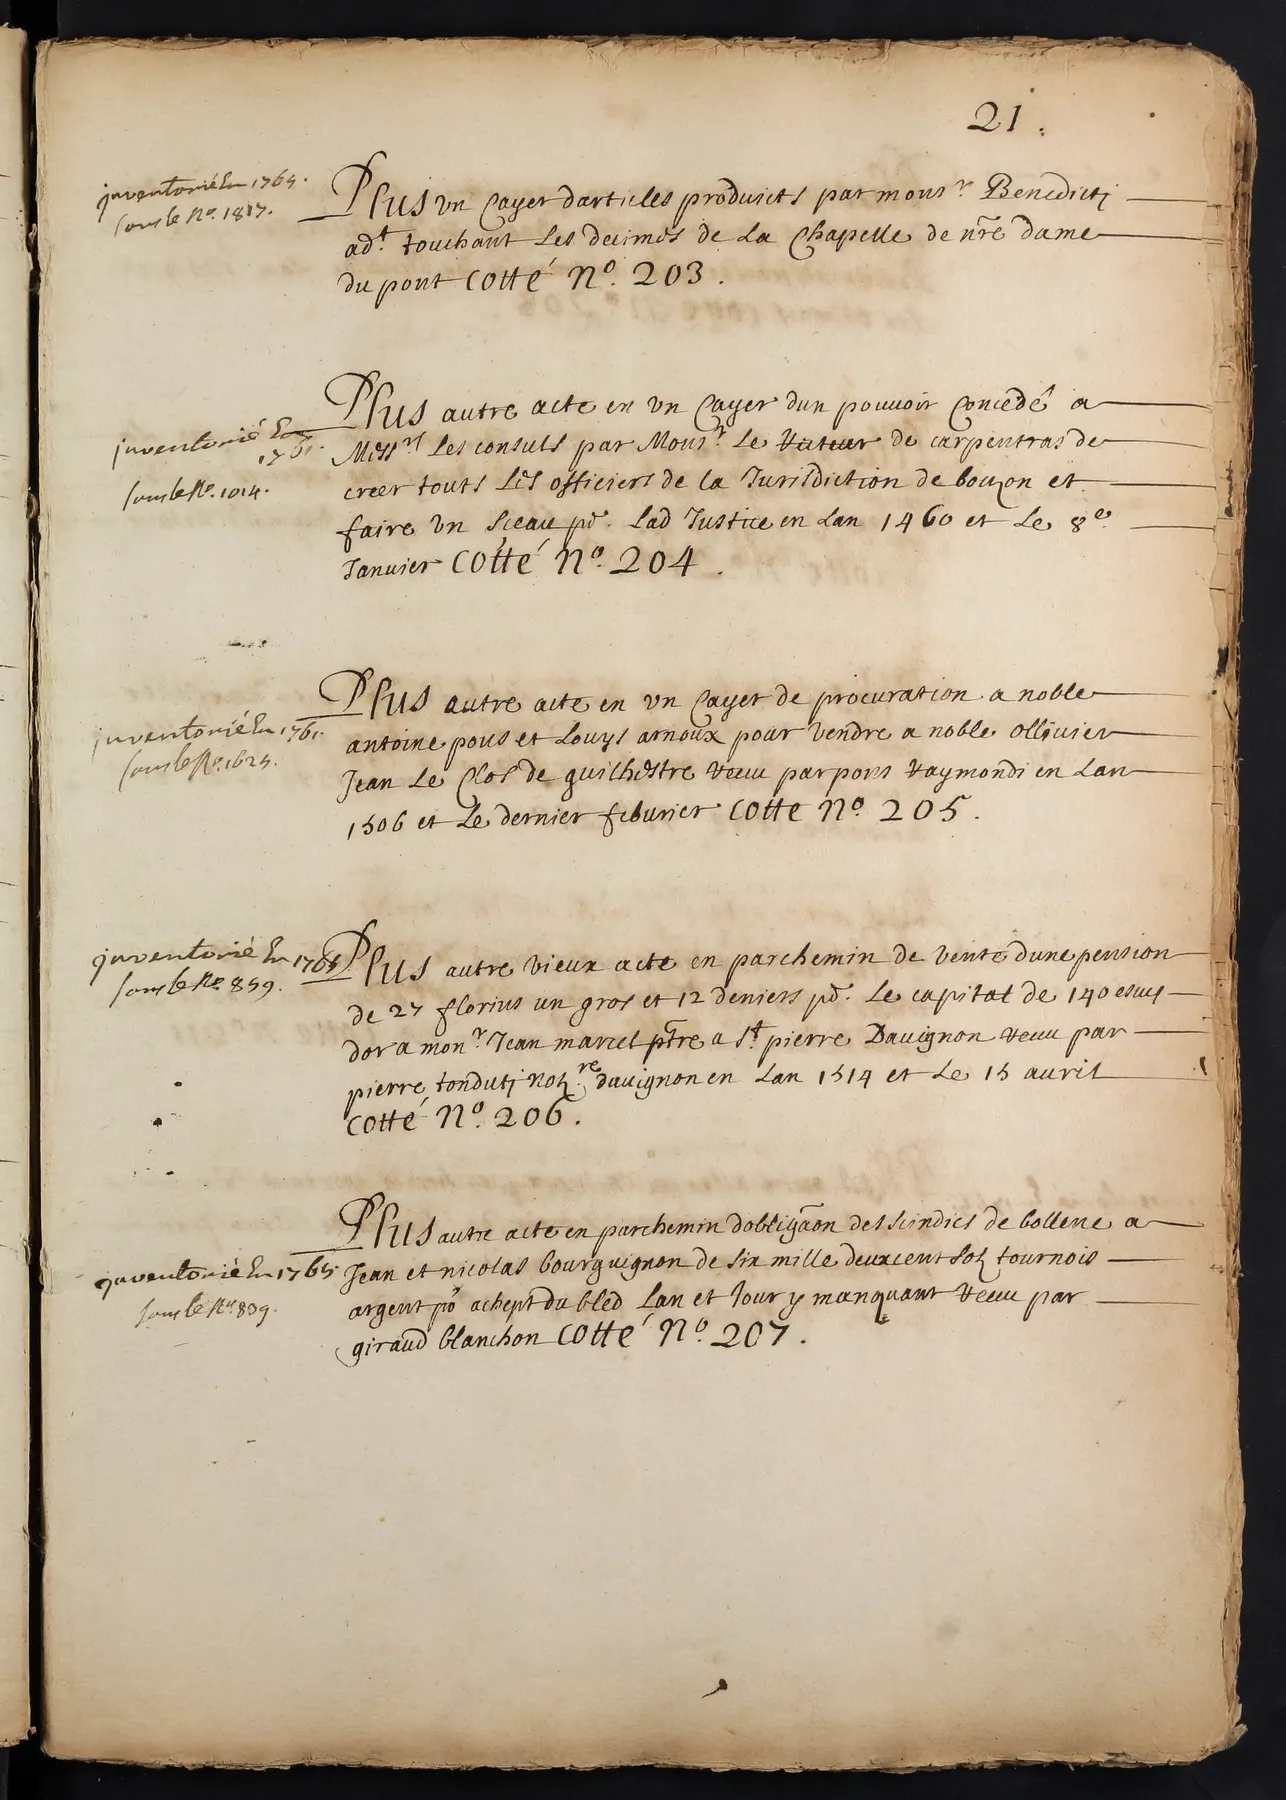 21.
inventorié En 1765.
sous le No. 1817.
Plus vn Cayer darticles produicts par mons.r Benedicti
ad.t touchant Les decimes de La Chapelle de nre dame
du pont Cotté No. 203.
inventorié En
1765.
sous le No. 1014.
Plus autre acte en vn Cayer dun pouuoir Concedé a
Mess.rs Les consuls par Mons.r Le de carpentras de
creer touts Les officiers de la Jurisdiction de bouzon et
faire vn sceau po. Lad Justice en Lan 1460 et Le 8e.
Januier Cotté No. 204.
inventorié En 1765.
sous le No. 1625.
Plus autre acte en vn Cayer de procuration a noble
antoine pons et Louys arnoux pour vendre a noble ollivier
Jean Le Clos de guilhestre receu par pons Raymondi en Lan
1506 et Le dernier feburier Cotte No. 205.
inventorié En 1765
sous le No. 859.
Plus autre vieux acte en parchemin de vente dune pension
de 27 florins un gros et 12 deniers po. Le capital de 140 escus
dor a mon.r Jean marcel ptre a St. pierre Dauignon receu par
pierre tonduti Notre. dauignon en Lan 1514 et Le 15 auril
Cotté No. 206.
inventorié En 1765
sous le No. 839.
Plus autre acte en parchemin dobligaon des scindics de bollene a
Jean et nicolas bourguignon de six mille deux cent solz tournois
argent po achept du bled Lan et Jour y manquant receu par
giraud blanchon Cotté No. 207.